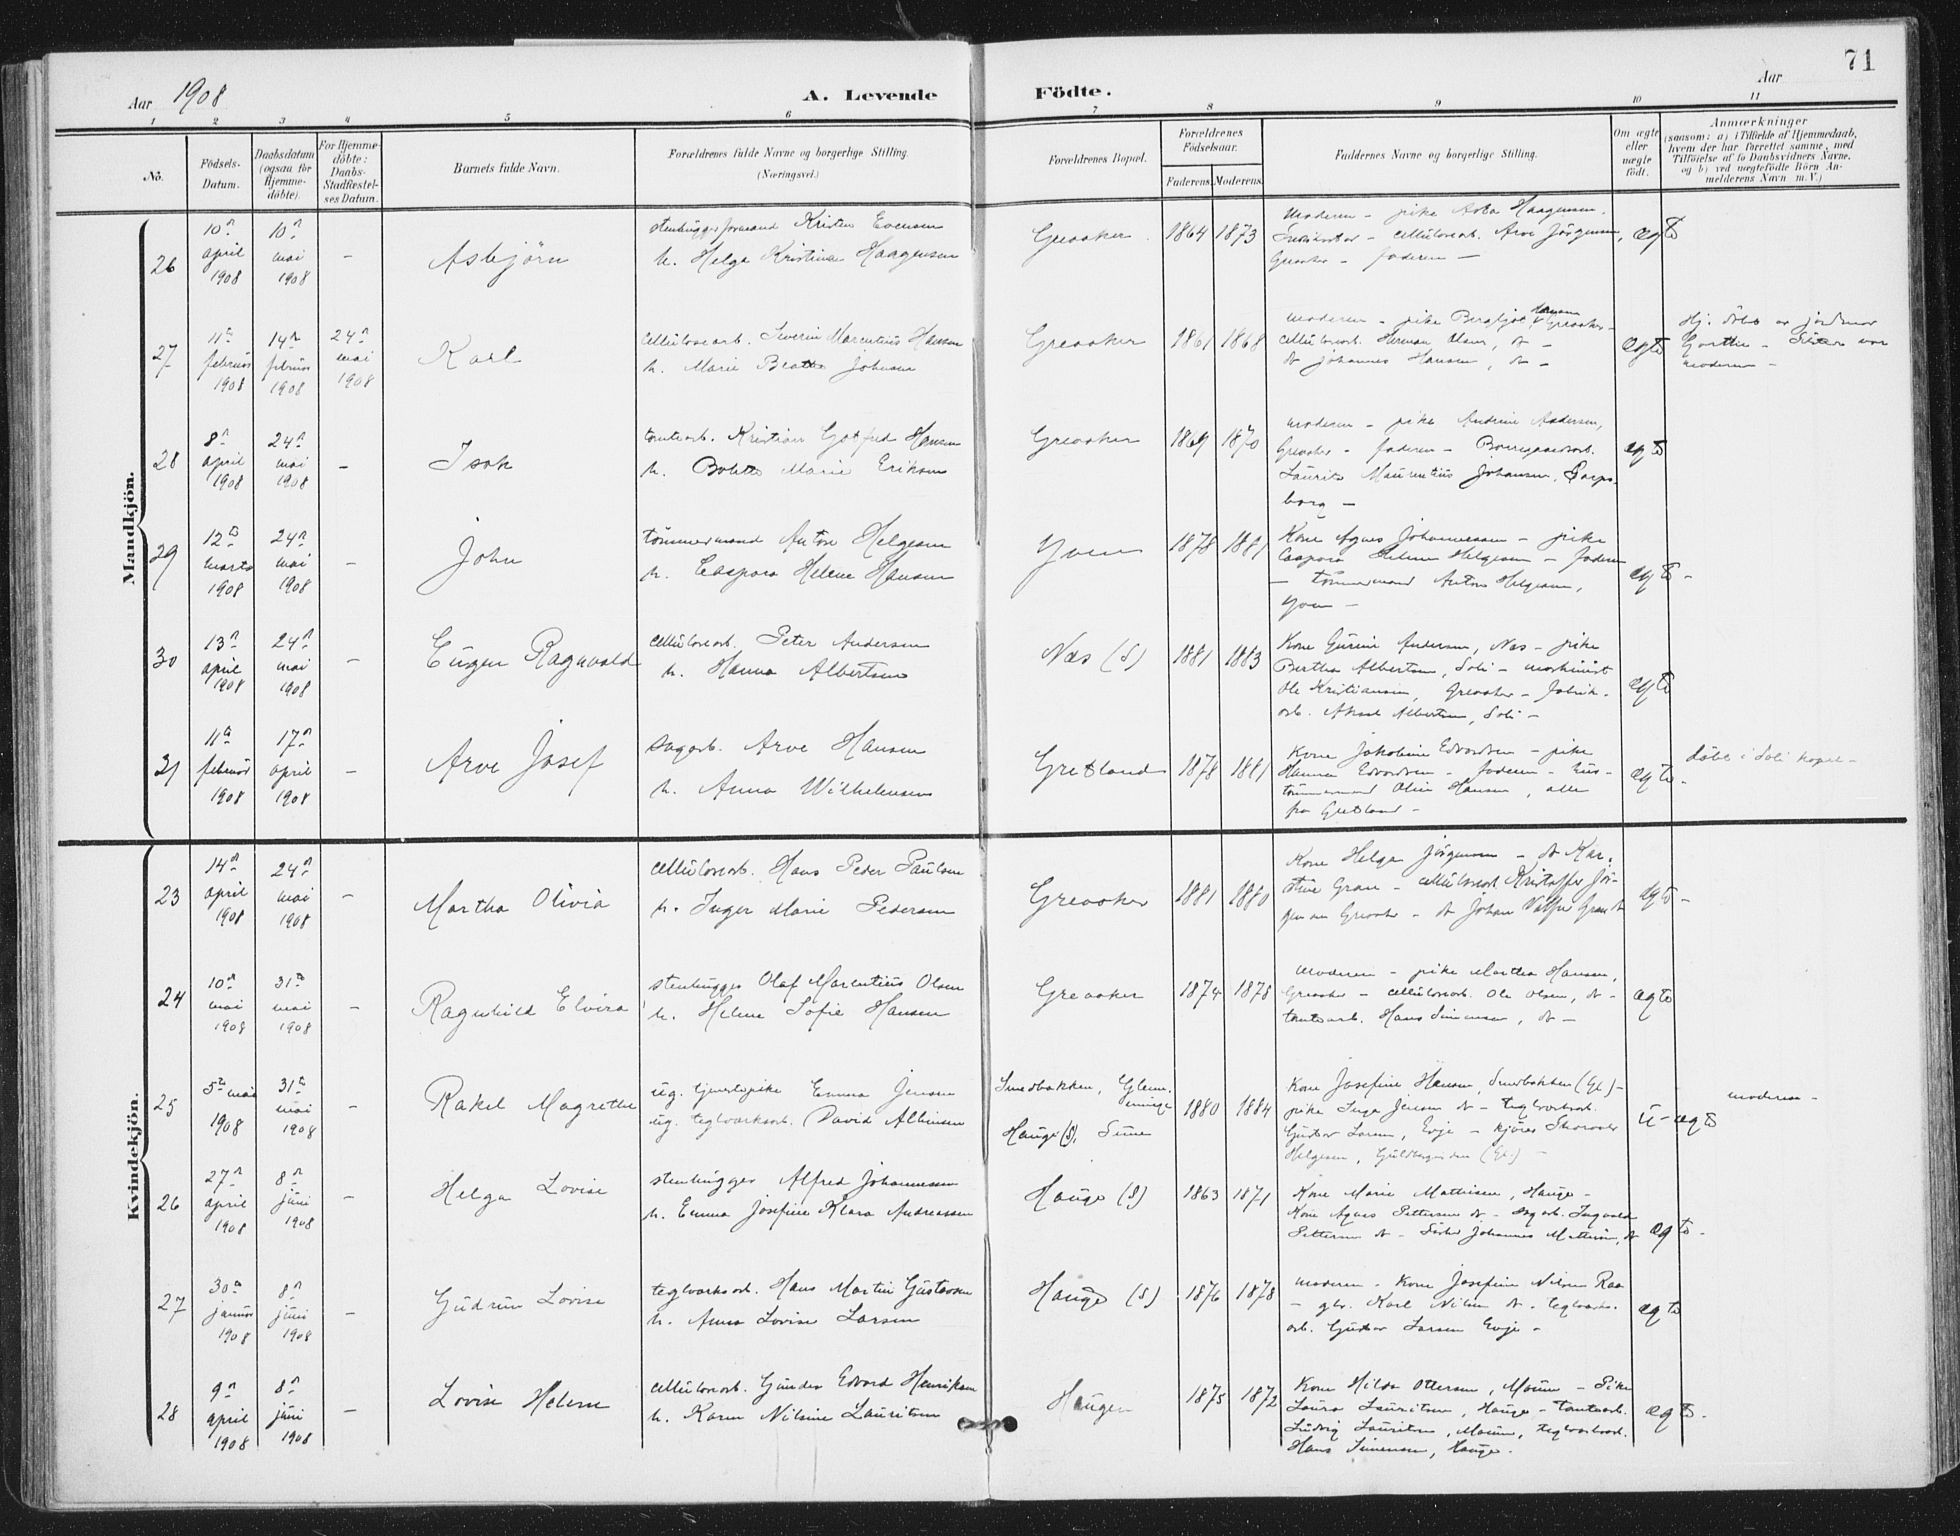 71
Aar 1908
A. Levende Födte.
Aar
1 2 3 4 5 6 7 8 9 10 11
No.
Födsels-Datum.
Daabsdatum (ogsaa for Hjemme-döbte).
For Hjemme-döbte: Daabs-Stadfæstel-ses Datum.
Barnets fulde Navn.
Forældrenes fulde Navne og borgerlige Stilling.
(Næringsvei.)
Forældrenes Bopæl.
Forældrenes Födselsaar.
Faderens. Moderens.
Faddernes Navne og borgerlige Stilling.
Om ægte eller uægte födt.
Anmærkninger
(saasom: a) i Tilfælde af Hjemmedaab,
hvem der har forrettet samme, med
Tilföielse af to Daabsvidners Navne,
og b) ved uægtefödte Börn An-
melderens Navn m. V.)
Mandkjön.
26
10n april 1908
10n mai 1908
-
Asbjörn
stenhuggerformand Kristen Evensen
h. Helga Kristine Haagensen
Greaaker.
1864 1873
moderen - pike Asta Haagensen.
cellulosearb. Arve Jörgensen,
Greaaker - faderen -
ægte
27
11te februar 1908
14n februar 1908
24n mai 1908
Karl
cellulosearb. Severin Marentius Hansen
h. Marie Beathe Johnsen
Greaaker
1861 1868
moderen - pike Bergljot Hansen Greaaker -
cellulosearb. Herman Olsen, do -
do Johannes Hansen, do -
ægte
Hj. döbt av jordmor
Gorthe - Söster var
moderen -
28
8n april 1908
24n mai 1908
-
Isak
tomtearb. Kristian Gotfred Hansen
h. Bolette Marie Eriksen
Greaaker
1869 1870
moderen - pike Andrine Andersen,
Greaaker - faderen - Borregaardsarb.
Laurits Maurentius Johansen, Sarps-
borg -
ægte
29
12te marts 1908
24n mai 1908
-
John
tömmermand Anton Helgesen
h. Caspara Helene Hansen
Yven
1878 1881
Kone Agnes Johannessen - pike
Caspara Helene Helgesen - faderen
- tömmermand Anton Helgesen,
Yven -
ægte -
30
13n april 1908
24n mai 1908
-
Eugen Ragnvald
cellulosearb. Peter Andersen
h. Hanna Albertsen
Næs (S)
1881 1883
Kone Gurine Andersen, Næs - pike
Bertha Albertsen, Soli - maskinist
Ole Kristiansen, Greaaker - fabrik-
arb. Aksel Albertsen, Soli -
ægte
31
11te februar 1908
17n april 1908
-
Arve Josef
sagarb. Arve Hansen
h. Anna Wilhelmsen
Gretland
1878 1881
Kone Jakobine Edvardsen - pike
Hanna Edvardsen - faderen - hus-
tömmermand Olin Hansen, alle
fra Gretland -
ægte -
döbt i Soli kapel -
Kvindekjön.
23
14n april 1908
24n mai 1908
-
Martha Olivia
cellulosearb. Hans Peder Paulsen
h. Inger Marie Pedersen
Greaaker
1881 1880
Kone Helga Jörgensen - do Kar-
oline Gran - cellulosearb. Kristoffer Jör-
gensen Greaaker - do Johan Gran do
ægte -
24
10n mai 1908
31te mai 1908
-
Ragnhild Elvira
stenhugger Olaf Marentius Olsen
h. Helene Sofie Hansen
Greaaker
1874 1878
moderen - pike Martha Hansen,
Greaaker - cellulosearb. Ole Olsen, do -
tomtearb. Hans Simensen, do -
ægte
25
5te mai 1908
31te mai 1908
-
Rakel Magrethe
ug. tjenestepike Emma Jensen
ug. teglverksarb. David Albinsen
Smedbakken, Glemminge
Hauge (S), Tune
1880 1884
Kone Josefine Hansen, Smedbakken (Gl.) -
pike Inga Jensen do - teglverksarb.
Gustav Larsen, Evje - kjörer
Helgesen, (Gl.) -
u-ægte
moderen -
26
27n april 1908
8n juni 1908
-
Helga Lovise
stenhugger Alfred Johannessen
h. Emma Josefine Klara Andreassen
Hauge (S)
1863 1871
Kone Marie Mathisen, Hauge -
Kone Agnes Pettersen do - sagarb. Ingvald
Pettersen do - Johannes Mathisen, do
ægte -
27
30te januar 1908
8n juni 1908
-
Gudrun Lovise
teglverksarb. Hans Martin Gustavsen
h. Anna Lovise Larsen
Hauge (S)
1876 1878
moderen - Kone Josefine Nilsen Raa
- gbr. Karl Nilsen do - teglverks-
arb. Gustav Larsen Evje -
ægte
28
9n april 1908
8n juni 1908
-
Lovise Helene
cellulosearb. Gunder Edvard Henriksen
h. Karen Nilsine Lauritsen
Haugen
1875 1872
Kone Hilda Ottersen, Moum - Pike
Laura Lauritsen, Hauge - tomtearb.
Ludvig Lauritsen, Moum, teglverksarb.
Hans Simensen, Hauge.
ægte -